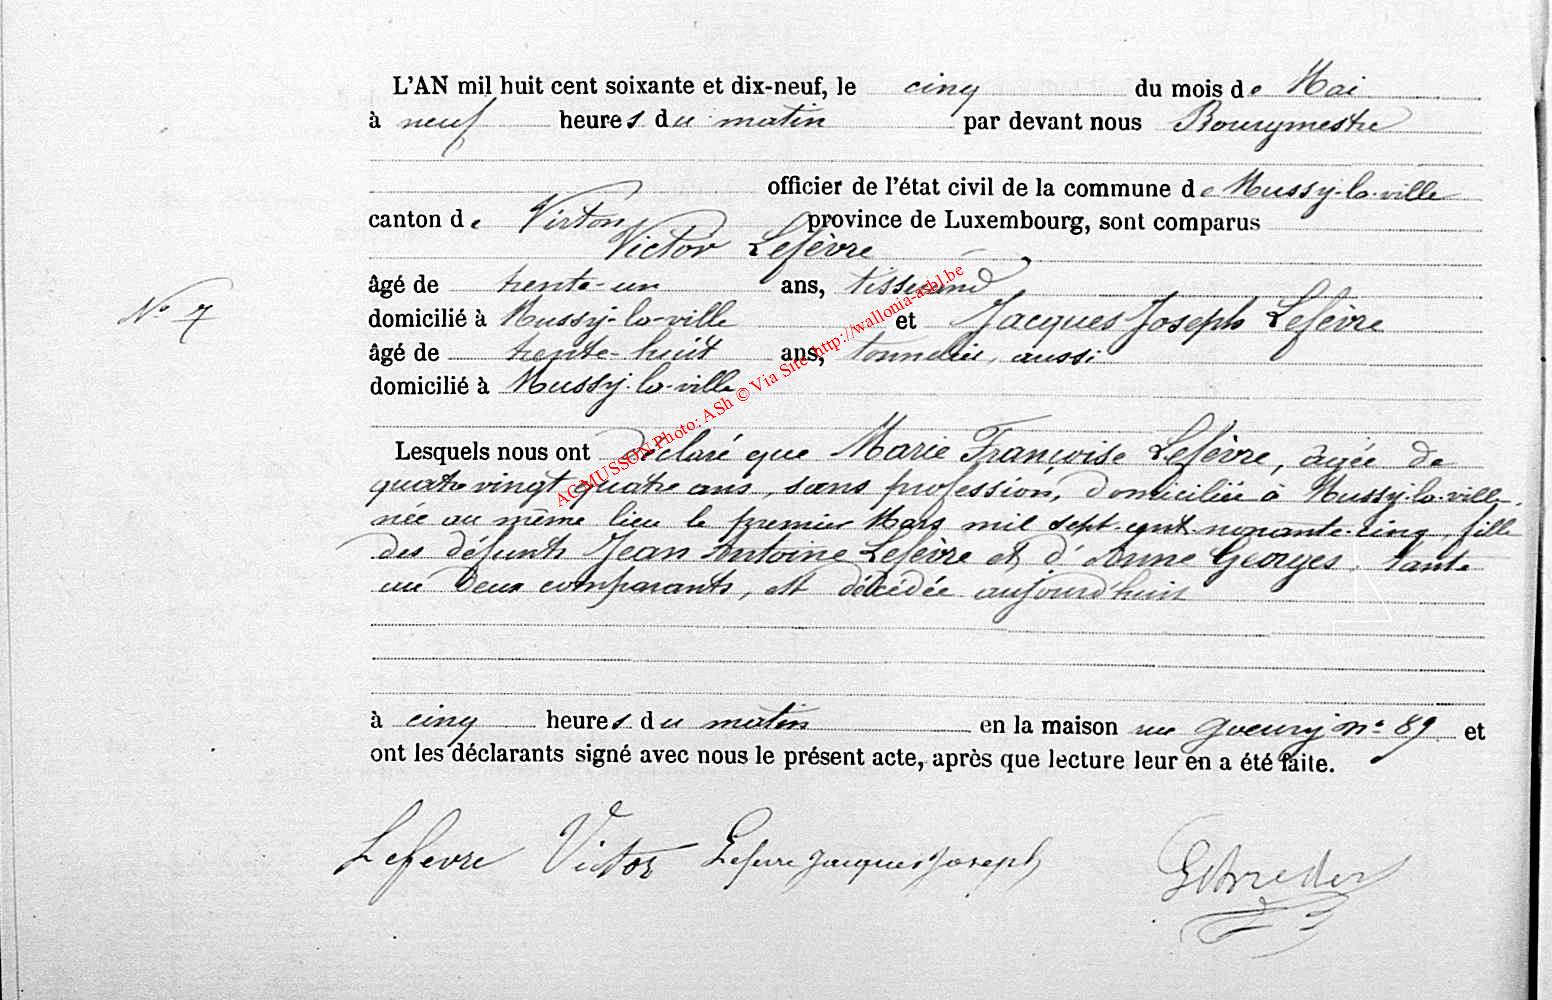 L'AN mil huit cent soixante et dix-neuf, le cinq du mois de Mai
à neuf heures du matin par devant nous Bourgmestre
officier de l'état civil de la commune de Mussy-la-ville
canton de Virton province de Luxembourg, sont comparus
Victor Lefèvre
âgé de trente-un ans, tisserand
domicilié à Mussy-la-ville et Jacques Joseph Lefèvre
N° 7
âgé de trente-huit ans, tonnelier, aussi
domicilié à Mussy-la-ville
Lesquels nous ont déclaré que Marie Françoise Lefèvre, âgée de
quatre vingt quatre ans, sans profession, domiciliée à Mussy-la-ville,
née au même lieu le premier Mars mil sept cent nonante-cinq, fille
des défunts Jean Antoine Lefèvre et d'Anne Georges, tante
au deux comparants, est décédée aujourd'huit
à cinq heures du matin en la maison rue n° 89 et
ont les déclarants signé avec nous le présent acte, après que lecture leur en a été faite.
Lefevre Victor Lefevre Jacques Joseph
AG MUSSON Photo: ASh © Via Site http://wallonia-asbl.be